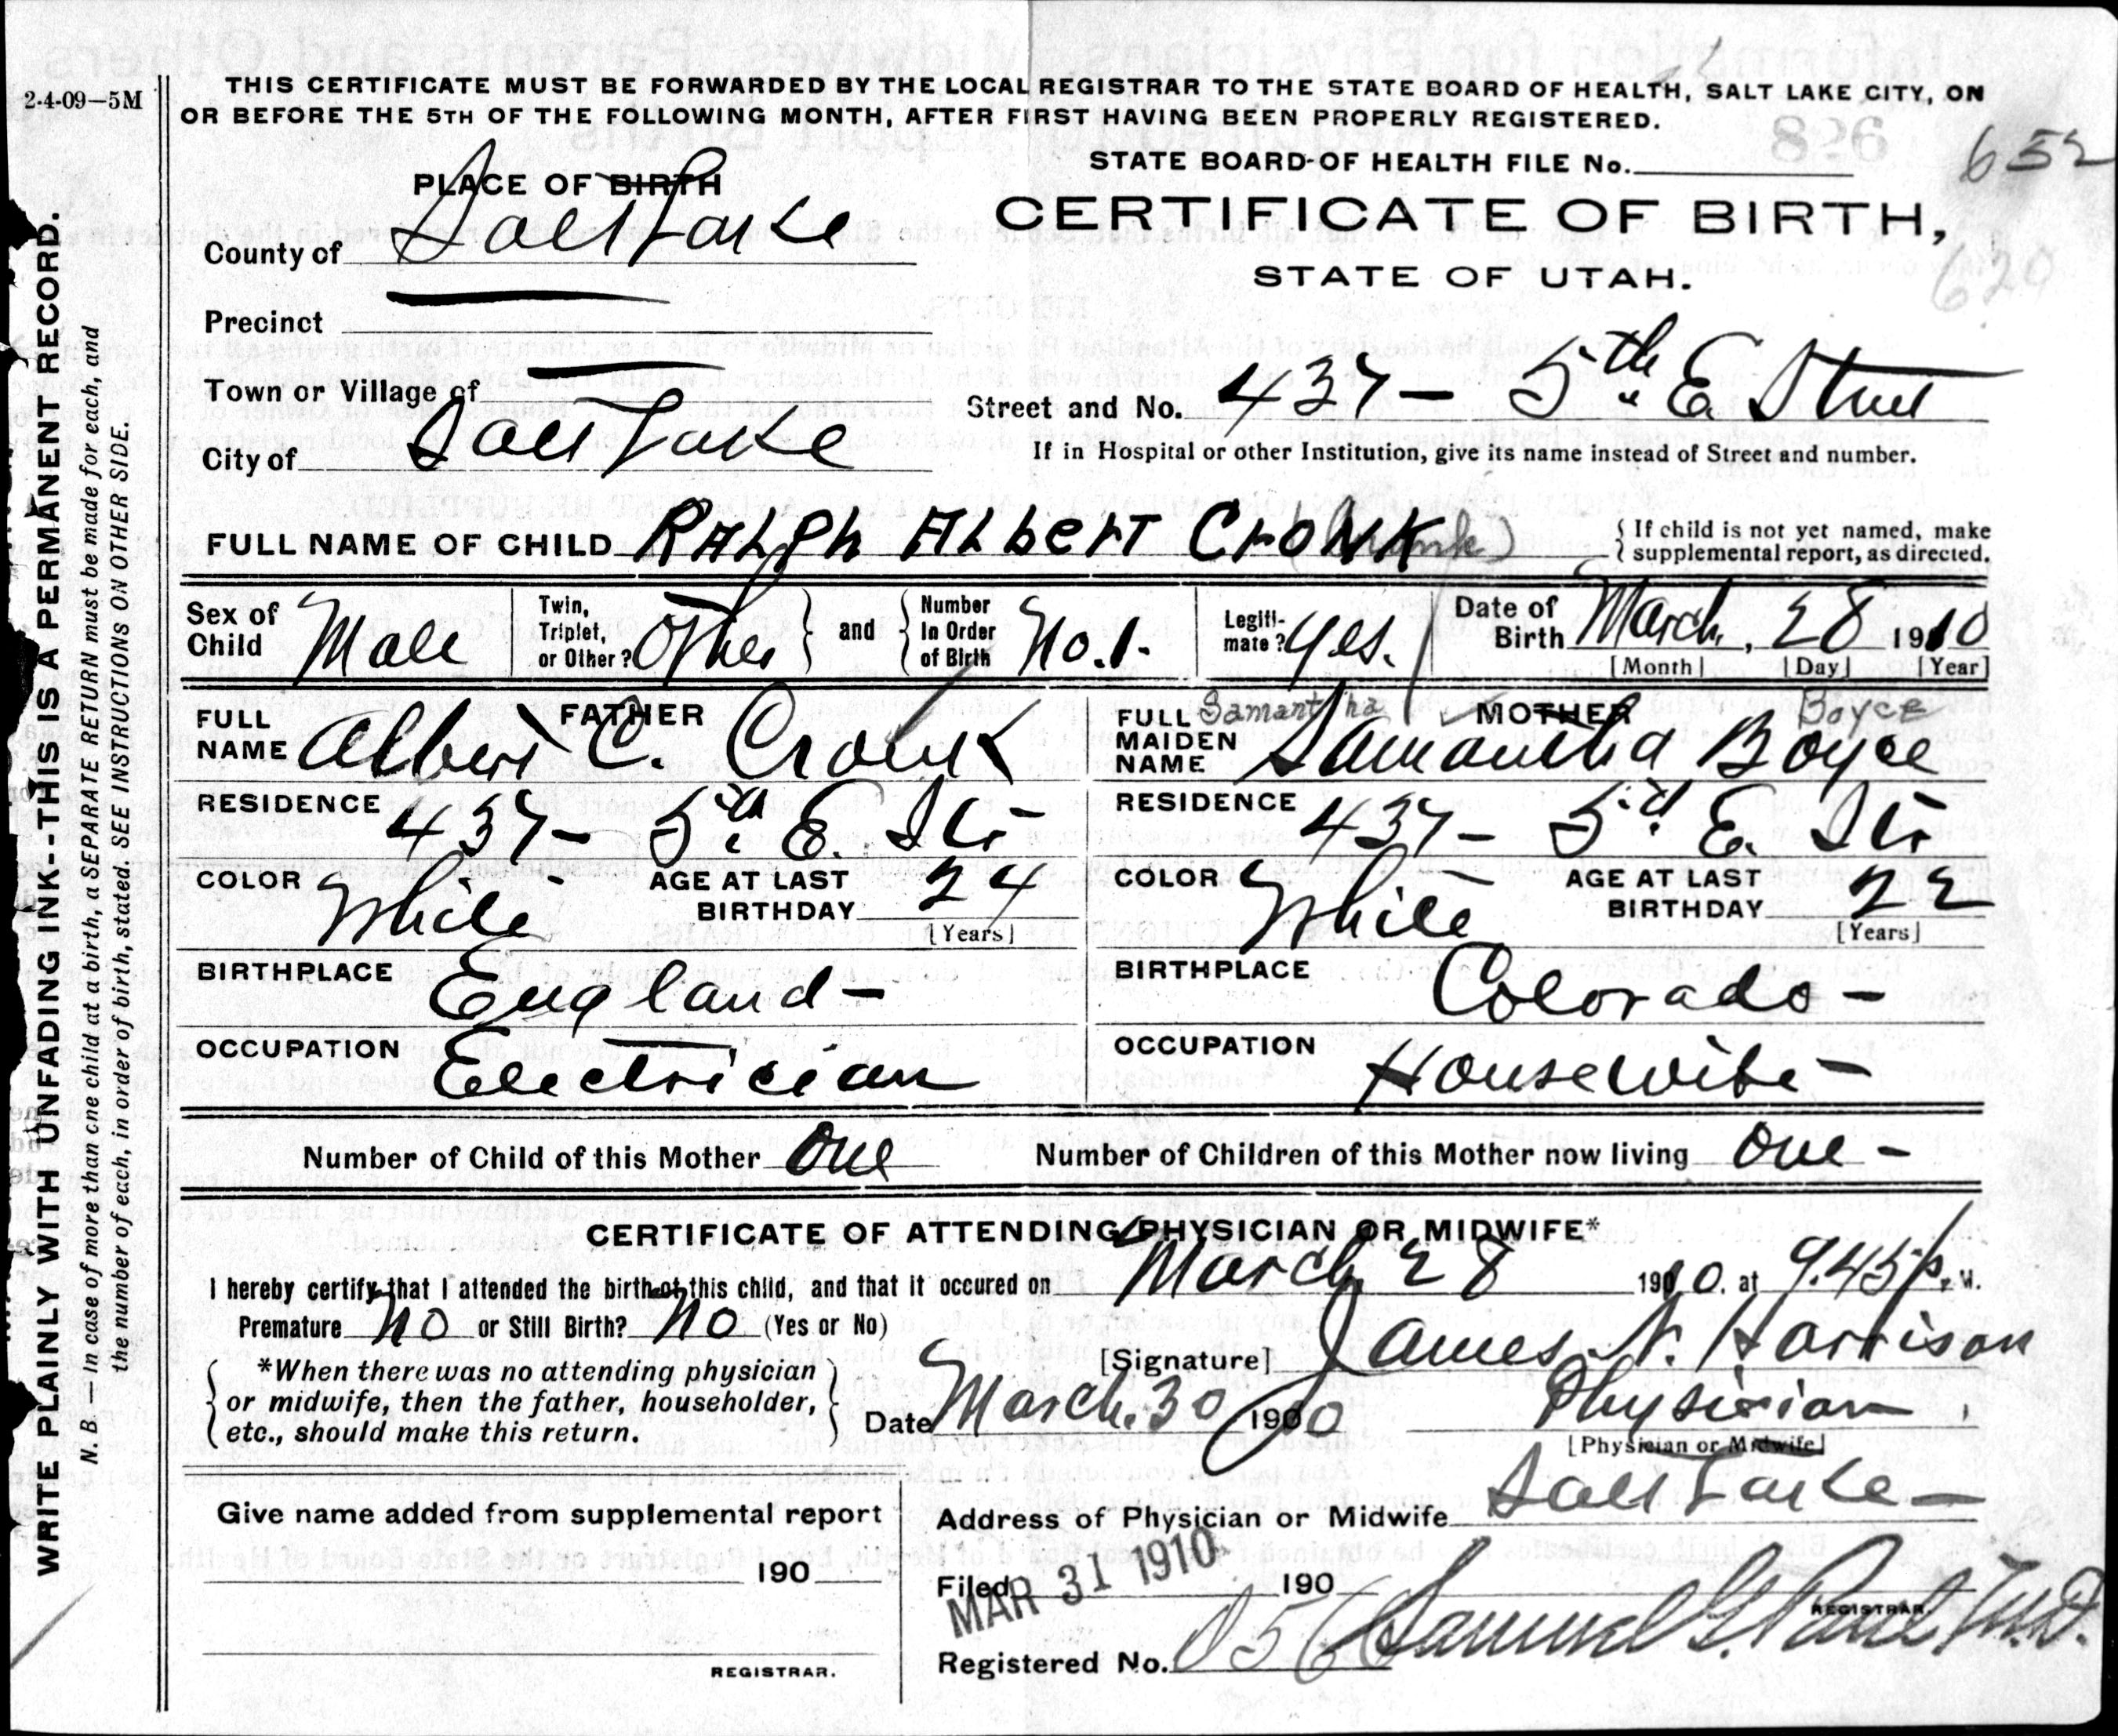 2-4-09—5M
THIS CERTIFICATE MUST BE FORWARDED BY THE LOCAL REGISTRAR TO THE STATE BOARD OF HEALTH, SALT LAKE CITY, ON
OR BEFORE THE 5TH OF THE FOLLOWING MONTH, AFTER FIRST HAVING BEEN PROPERLY REGISTERED.
STATE BOARD OF HEALTH FILE No. 826 652
PLACE OF BIRTH
CERTIFICATE OF BIRTH,
County of Salt Lake
STATE OF UTAH.
620
Precinct
Town or Village of
Street and No. 437— 5th E. Street
City of Salt Lake
If in Hospital or other Institution, give its name instead of Street and number.
FULL NAME OF CHILD RALPh ALbERT CrONK (Cronk) { If child is not yet named, make
{ supplemental report, as directed.
Sex of Child Male Twin, Triplet, or Other? Other } and { Number In Order of Birth No. 1. Legiti-mate? Yes. Date of Birth March, 28 1910
[Month] [Day] [Year]
FATHER
FULL NAME Albert C. Cronk
RESIDENCE 437— 5th E. St.
COLOR White AGE AT LAST BIRTHDAY 24
[Years]
BIRTHPLACE England—
OCCUPATION Electrician
MOTHER
Samantha Boyce
FULL MAIDEN NAME Samantha Boyce
RESIDENCE 437— 5th E. St.
COLOR White AGE AT LAST BIRTHDAY 22
[Years]
BIRTHPLACE Colorado—
OCCUPATION Housewife—
Number of Child of this Mother One Number of Children of this Mother now living One—
CERTIFICATE OF ATTENDING PHYSICIAN OR MIDWIFE*
I hereby certify that I attended the birth of this child, and that it occured on March 28 1910. at 9.45 P. M.
Premature No or Still Birth? No (Yes or No)
[Signature] James N. Harrison
*When there was no attending physician
or midwife, then the father, householder,
etc., should make this return.
Date March. 30 1910 Physician
[Physician or Midwife]
Give name added from supplemental report
190
REGISTRAR.
Address of Physician or Midwife Salt Lake—
Filed MAR 31 1910 190
Samuel G. Paul M.D.
REGISTRAR.
Registered No. 856
WRITE PLAINLY WITH UNFADING INK--THIS IS A PERMANENT RECORD.
N. B.—In case of more than one child at a birth, a SEPARATE RETURN must be made for each, and
the number of each, in order of birth, stated. SEE INSTRUCTIONS ON OTHER SIDE.